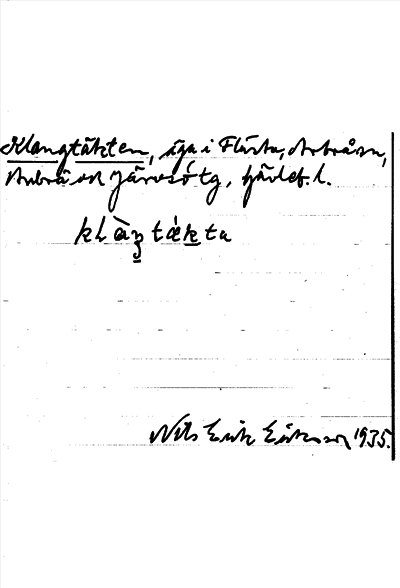 Klangtäkten, äga i Flästa, Arbrå sn,
Arbrå och Järvsö tg, Gävleb. l.
klàŋtǽkta
Nils Erik Eriksson 1935.